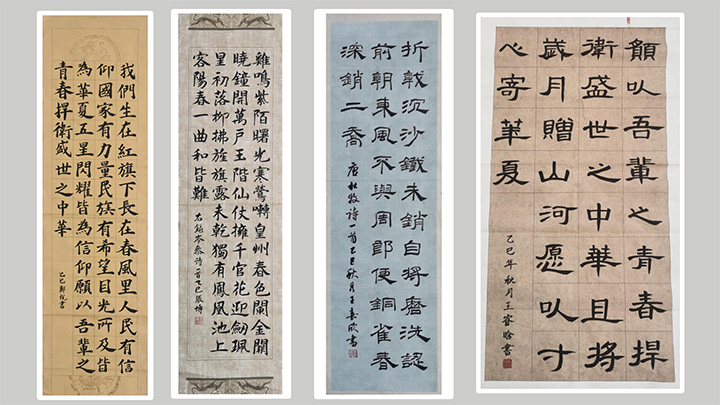 我們生在紅旗下長在春風里人民有信
仰國家有力量民族有希望目光所及皆
為華夏五星閃耀皆為信仰願以吾輩之
青春捍衛盛世之中華
乙巳鄭悅書
雞鳴紫陌曙光寒鶯囀皇州春色闌金闕
曉鐘開萬戶玉階仙仗擁千官花迎劍珮
星初落柳拂旌旗露未乾獨有鳳凰池上
客陽春一曲和皆難
右錄岑參詩一首乙巳張博
折戟沉沙鐵未銷自將磨洗認
前朝東風不與周郎便銅雀春
深銷二喬
唐杜牧詩一首乙巳秋月王春欣書
願以吾輩之青春捍
衛盛世之中華且將
歲月贈山河愿以寸
心寄華夏
乙巳年秋月王睿晗書